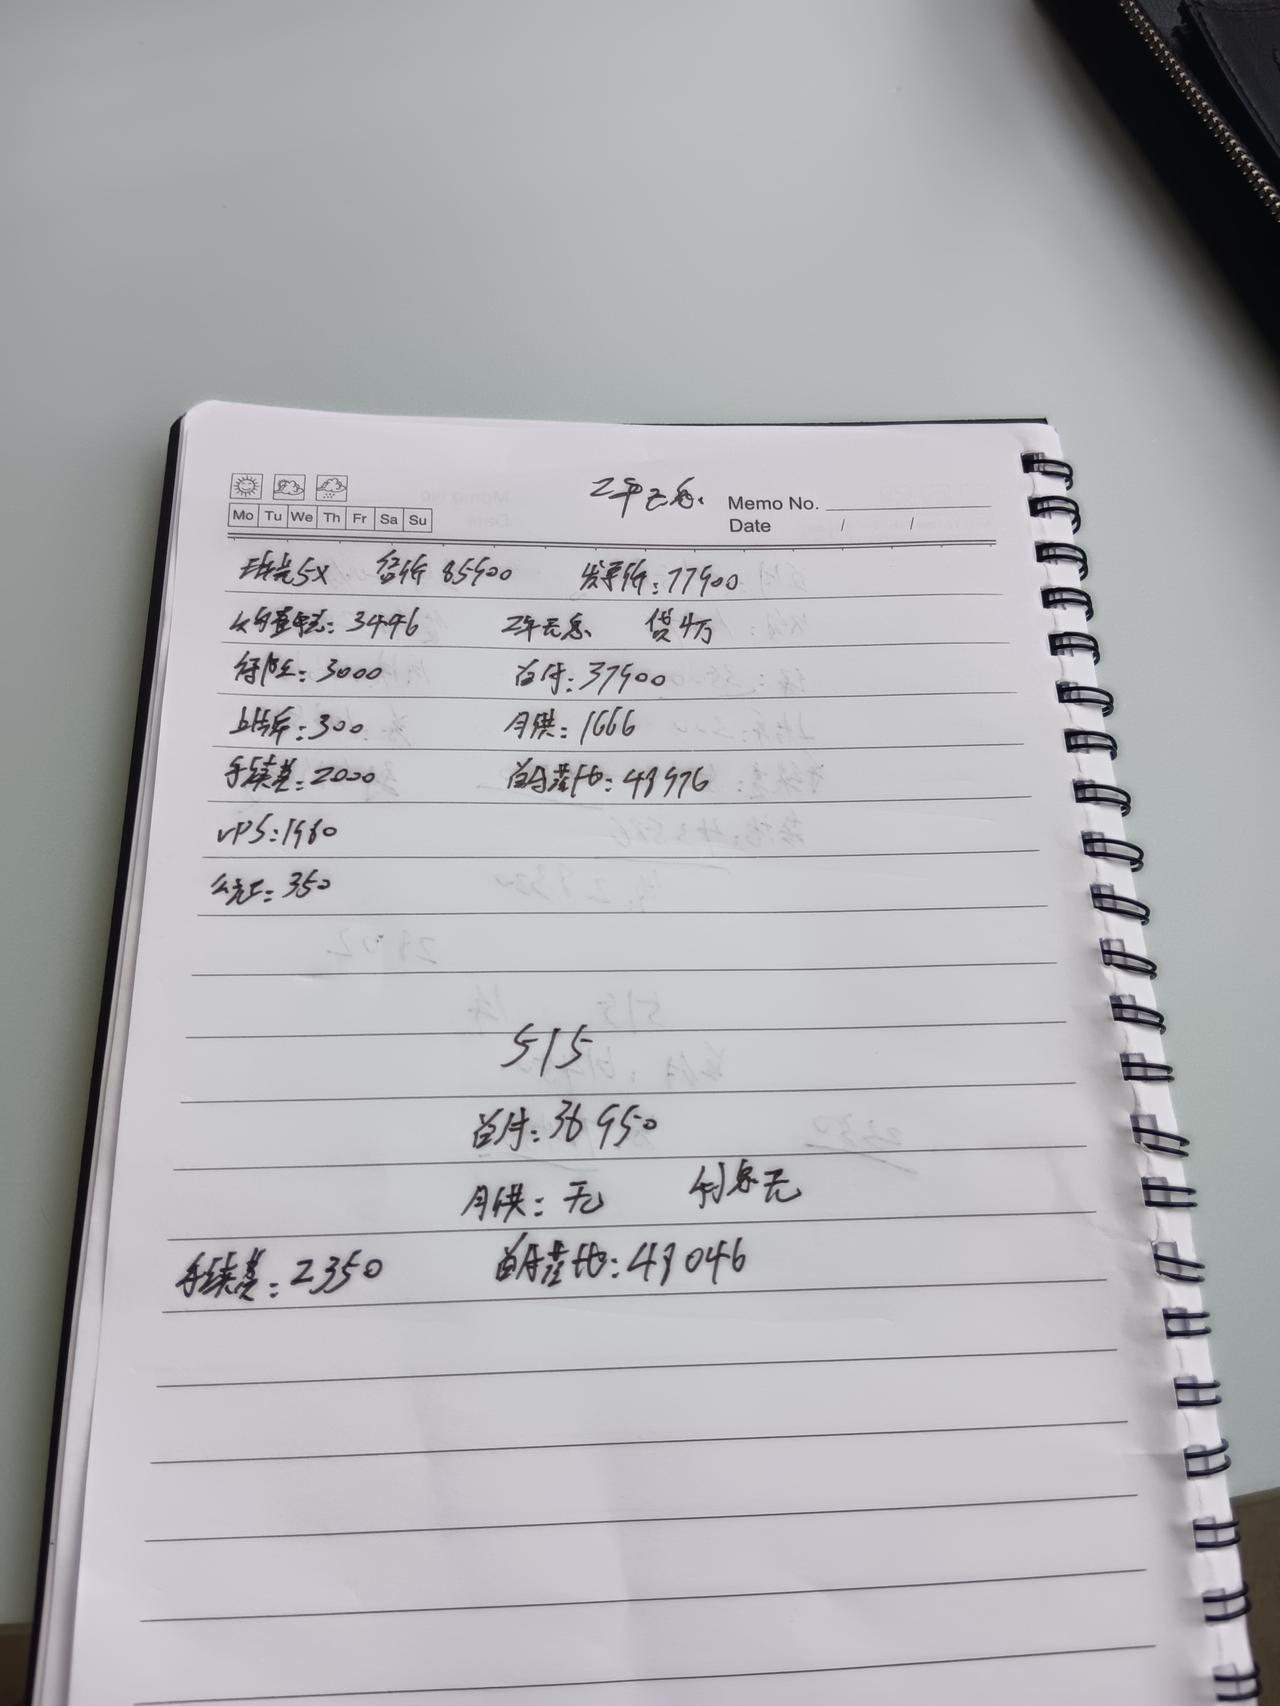 2年无息
Memo No.
Mo Tu We Th Fr Sa Su
Date / /
瑞虎5X 全价 85900 发票价: 77900
购置税: 3446 2年无息 贷4万
保险: 3000 首付: 37900
上牌: 300 月供: 1666
手续费: 2000 首付落地: 48976
VPS: 1980
公证: 350
515
首付: 36950
月供: 无 利息无
手续费: 2350 首付落地: 48046